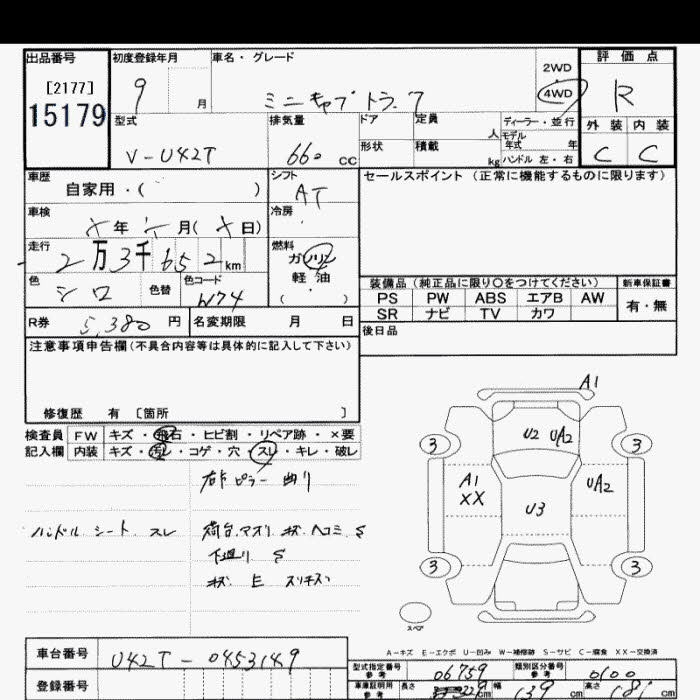 出品番号
[2177]
15179
初度登録年月
9 月
車名・グレード
ミニキャブ トラック
2WD
4WD
評価点
R
外装 内装
C C
型式
V-U42T
排気量
660 CC
ドア
形状
定員
人
積載
kg
ディーラー・並行
モデル年式 年
ハンドル 左・右
車歴
自家用・( )
シフト
AT
冷房
セールスポイント(正常に機能するものに限ります)
車検
年 月( 日)
走行
2万3千652km
燃料
ガソリン
軽油
( )
色
シロ
色替
色コード
W74
装備品(純正品に限り○をつけてください)
新車保証書
PS PW ABS エアB AW
SR ナビ TV カワ
有・無
R券 5,380 円
名変期限 月 日
後日品
注意事項申告欄(不具合内容等は具体的に記入して下さい)
修復歴 有 [箇所 ]
検査員記入欄
FW キズ・飛石・ヒビ割・リペア跡・×要
内装 キズ・汚レ・コゲ・穴・スレ・キレ・破レ
右Fピラー曲り
ハンドル シート スレ
荷台.アオリ キズ ヘコミ S
下廻り S
キズ E スリキズ
A1
U2 UA2
3 3
A1
XX
UA2
U3
3 3
スペア
A-キズ E-エクボ U-凹み W-補修跡 S-サビ C-腐食 XX-交換済
車台番号
U42T-0453149
登録番号
型式指定番号
参考
06759
類別区分番号
参考
0100
車庫証明用
参考
長さ
幅
139 cm
高さ
181 cm